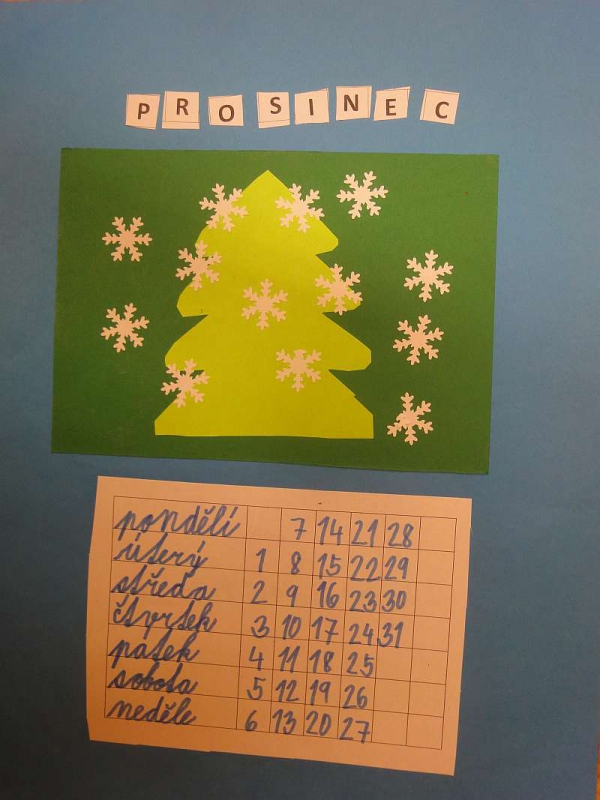 PROSINEC
pondělí 7 14 21 28
úterý 1 8 15 22 29
středa 2 9 16 23 30
čtvrtek 3 10 17 24 31
patek 4 11 18 25
sobota 5 12 19 26
neděle 6 13 20 27